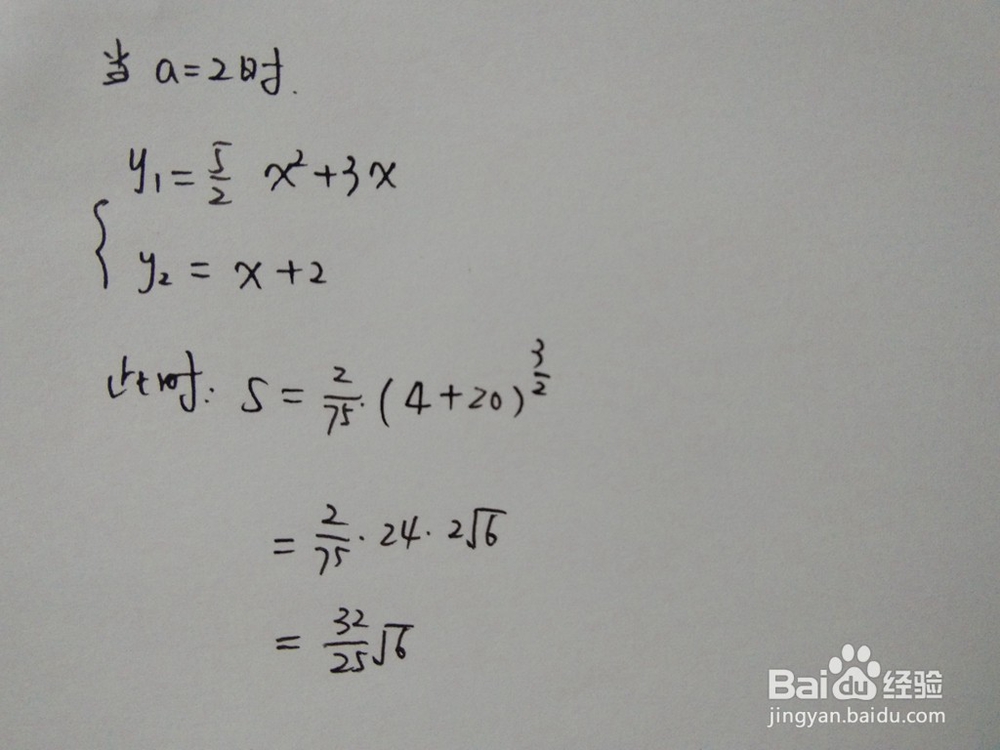 当 a=2时.
y₁ = 5/2 x²+3x
{
y₂ = x+2
此时: S = 2/75·(4+20)^(3/2)
= 2/75·24·2√6
= 32/25√6
Baidu经验
jingyan.baidu.com